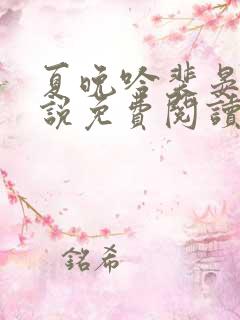 夏晚吟裴晃
說免費閱讀
銘希